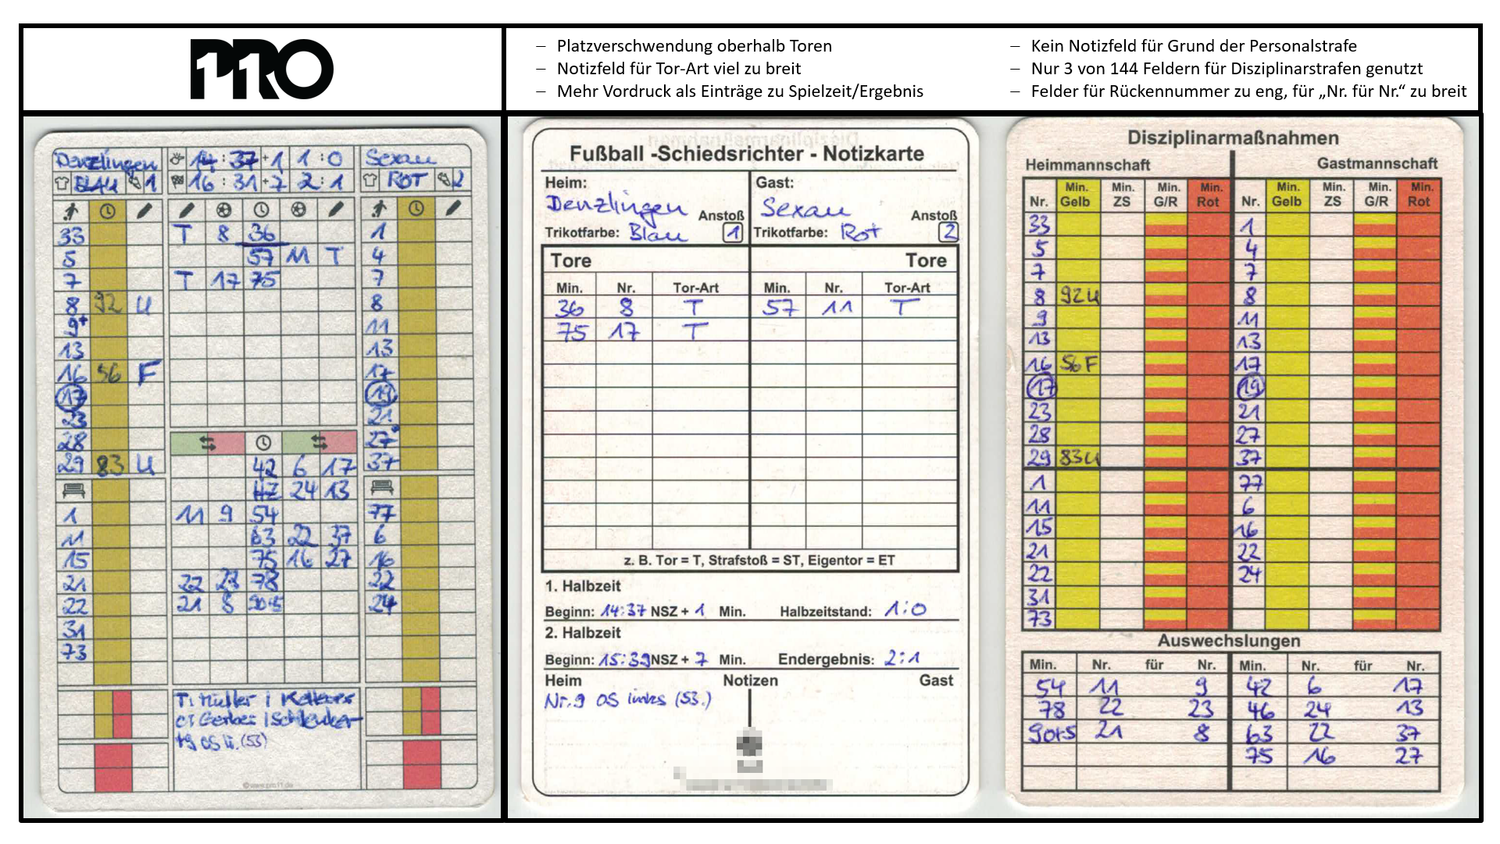 PRO
– Platzverschwendung oberhalb Toren
– Notizfeld für Tor-Art viel zu breit
– Mehr Vordruck als Einträge zu Spielzeit/Ergebnis
– Kein Notizfeld für Grund der Personalstrafe
– Nur 3 von 144 Feldern für Disziplinarstrafen genutzt
– Felder für Rückennummer zu eng, für „Nr. für Nr.“ zu breit
Denzlingen 14:37+1 1:0 Sexau
BLAU 1 16:31+7 2:1 ROT 2
33 T 8 36 1
5 57 11 T 4
7 T 17 75 7
8 92 U 8
9+ 11
13 13
16 56 F 17
17 19
23 21
28 27
29 83 U 42 6 17 37
HZ 24 13
1 11 9 54 77
11 63 22 37 6
15 75 16 27 16
21 22 23 78 22
22 21 8 90+5 24
31
73
T: Müller |
C: Gerber |
+9 OS li. (53)
Fußball -Schiedsrichter - Notizkarte
Heim: Gast:
Denzlingen Anstoß Sexau Anstoß
Trikotfarbe: Blau 1 Trikotfarbe: Rot 2
Tore Tore
Min. Nr. Tor-Art Min. Nr. Tor-Art
36 8 T 57 11 T
75 17 T
z. B. Tor = T, Strafstoß = ST, Eigentor = ET
1. Halbzeit
Beginn: 14:37 NSZ + 1 Min. Halbzeitstand: 1:0
2. Halbzeit
Beginn: 15:39 NSZ + 7 Min. Endergebnis: 2:1
Heim Notizen Gast
Nr. 9 OS links (53.)
Disziplinarmaßnahmen
Heimmannschaft Gastmannschaft
Min. Min. Min. Min. Min. Min. Min. Min.
Nr. Gelb ZS G/R Rot Nr. Gelb ZS G/R Rot
33 1
5 4
7 7
8 92U 8
9 11
13 13
16 56 F 17
17 19
23 21
28 27
29 83U 37
1 77
11 6
15 16
21 22
22 24
31
73
Auswechslungen
Min. Nr. für Nr. Min. Nr. für Nr.
54 11 9 42 6 17
78 22 23 46 24 13
90+5 21 8 63 22 37
75 16 27